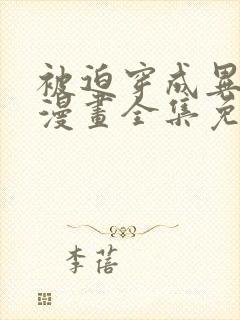 被迫穿成異
漫畫全集免
李蓓